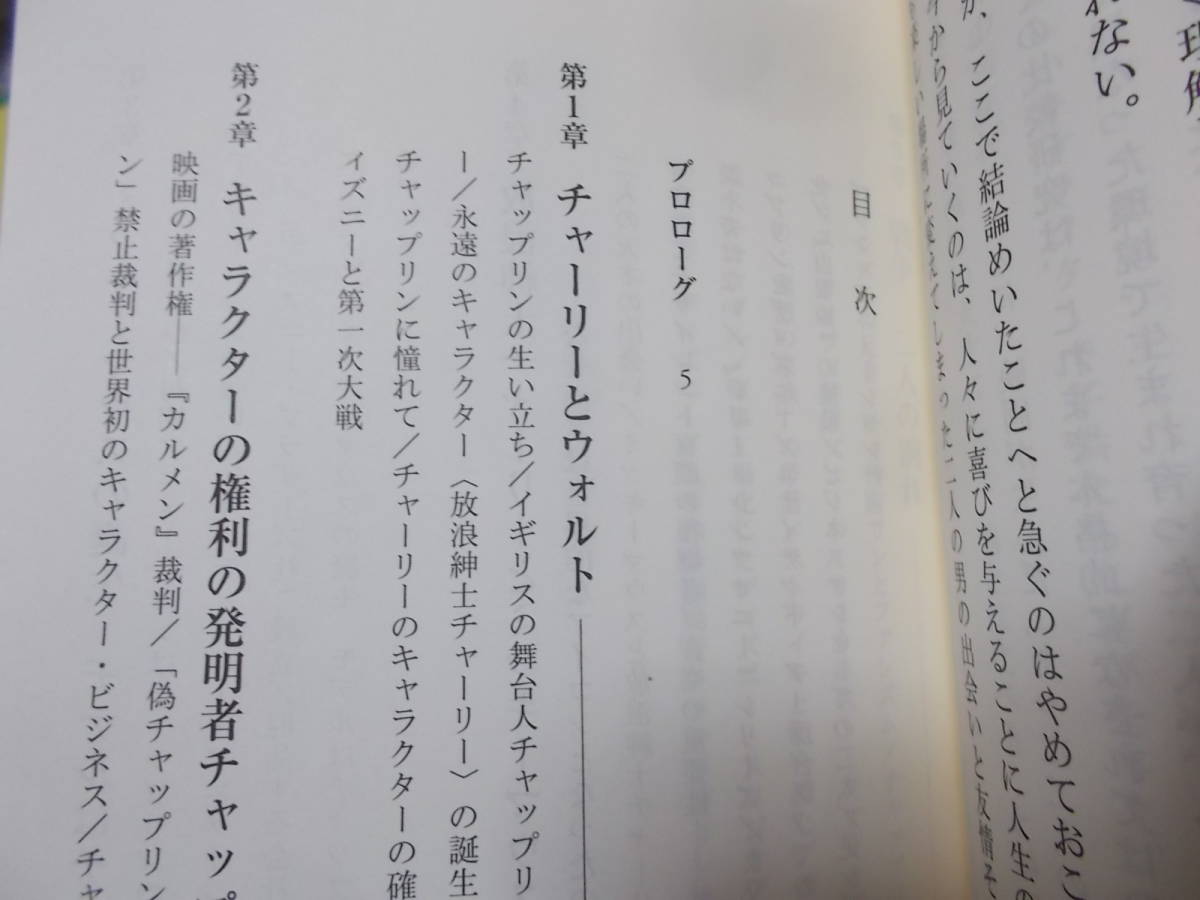 れない。
ここで結論めいたことへと急ぐのはやめておこ
から見ていくのは、人々に喜びを与えることに人生の
てしまった二人の男の出会いと友情そ
目次
プロローグ 5
第1章 チャーリーとウォルト
チャップリンの生い立ち/イギリスの舞台人チャップリ
ー/永遠のキャラクター〈放浪紳士チャーリー〉の誕生
チャップリンに憧れて/チャーリーのキャラクターの確
ィズニーと第一次大戦
第2章 キャラクターの権利の発明者チャップ
映画の著作権――『カルメン』裁判/「偽チャップリン
ン」禁止裁判と世界初のキャラクター・ビジネス/チャ